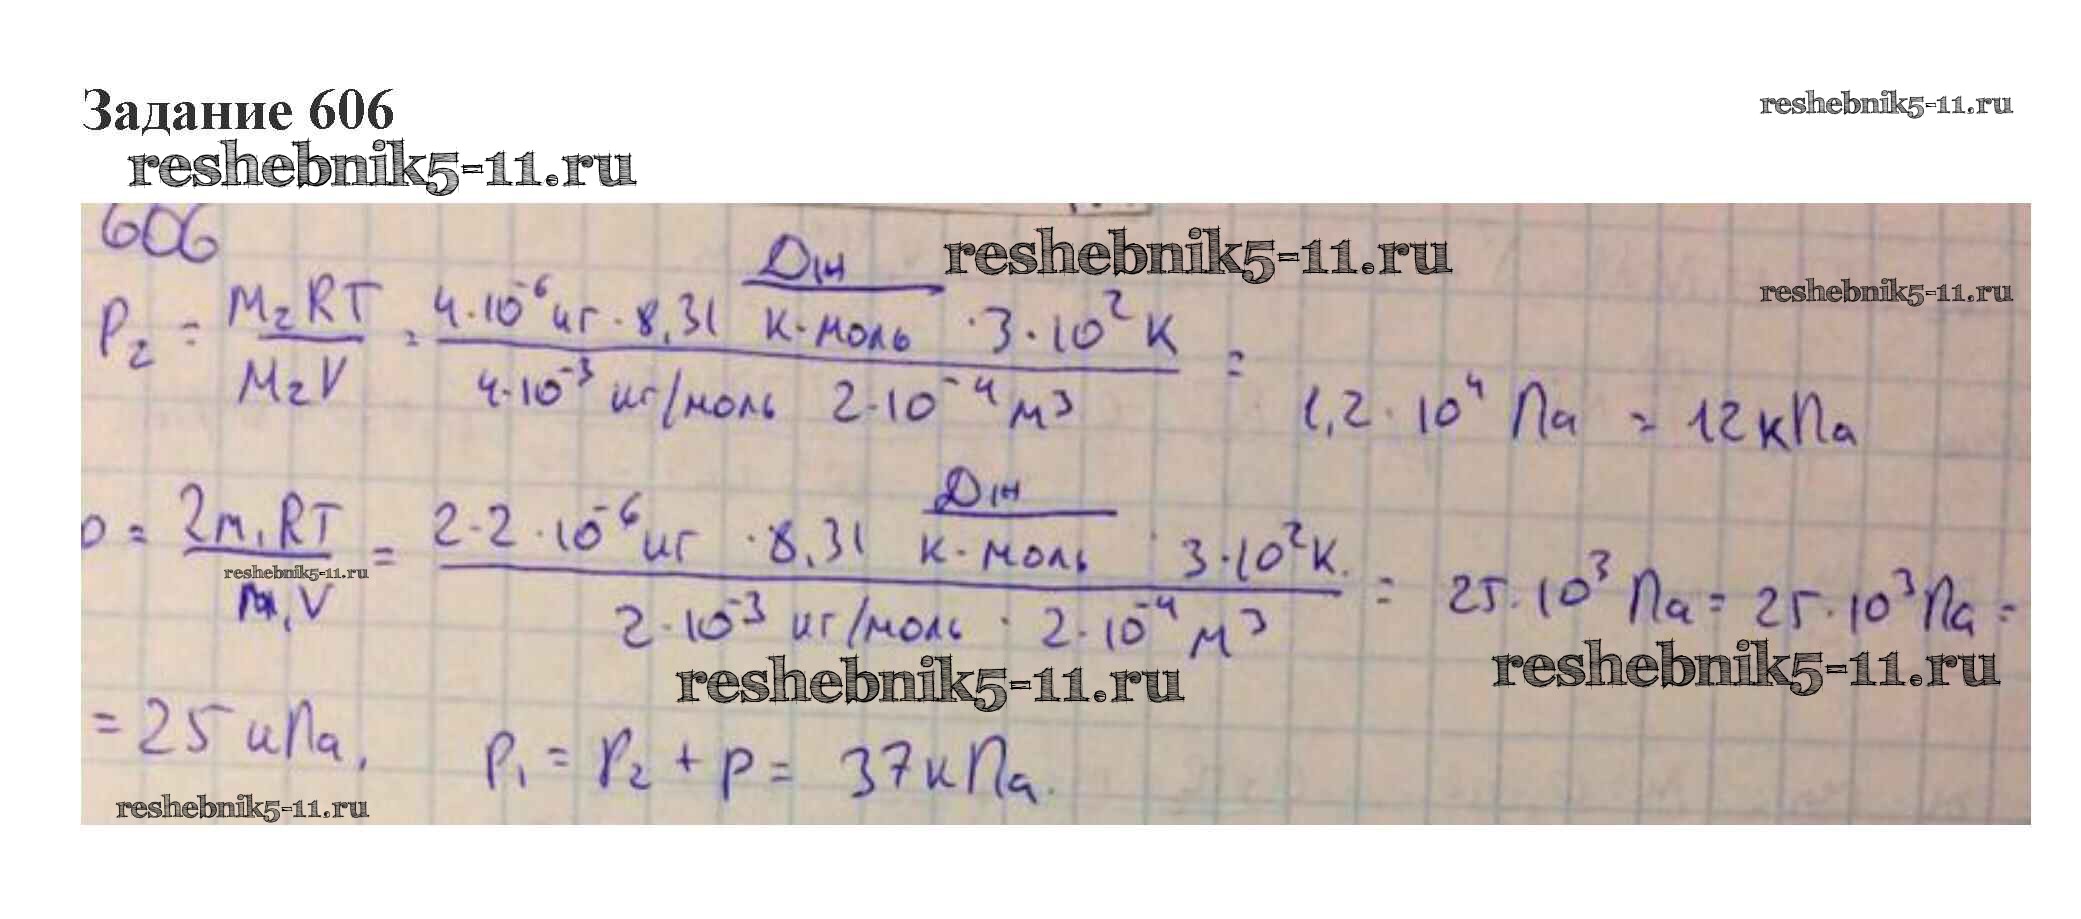 Задание 606
reshebnik5-11.ru
reshebnik5-11.ru
606
reshebnik5-11.ru
reshebnik5-11.ru
P₂ = M₂RT / M₂V = 4·10⁻⁶ кг · 8,31 Дж / К·моль · 3·10² К / 4·10⁻³ кг/моль 2·10⁻⁴ м³ = 1,2·10⁴ Па = 12 кПа
p = 2m₁RT / M₁V = 2·2·10⁻⁶ кг · 8,31 Дж / К·моль · 3·10² К. / 2·10⁻³ кг/моль · 2·10⁻⁴ м³ = 25·10³ Па = 25·10³ Па =
reshebnik5-11.ru
reshebnik5-11.ru
reshebnik5-11.ru
= 25 кПа, P₁ = P₂ + p = 37 кПа.
reshebnik5-11.ru